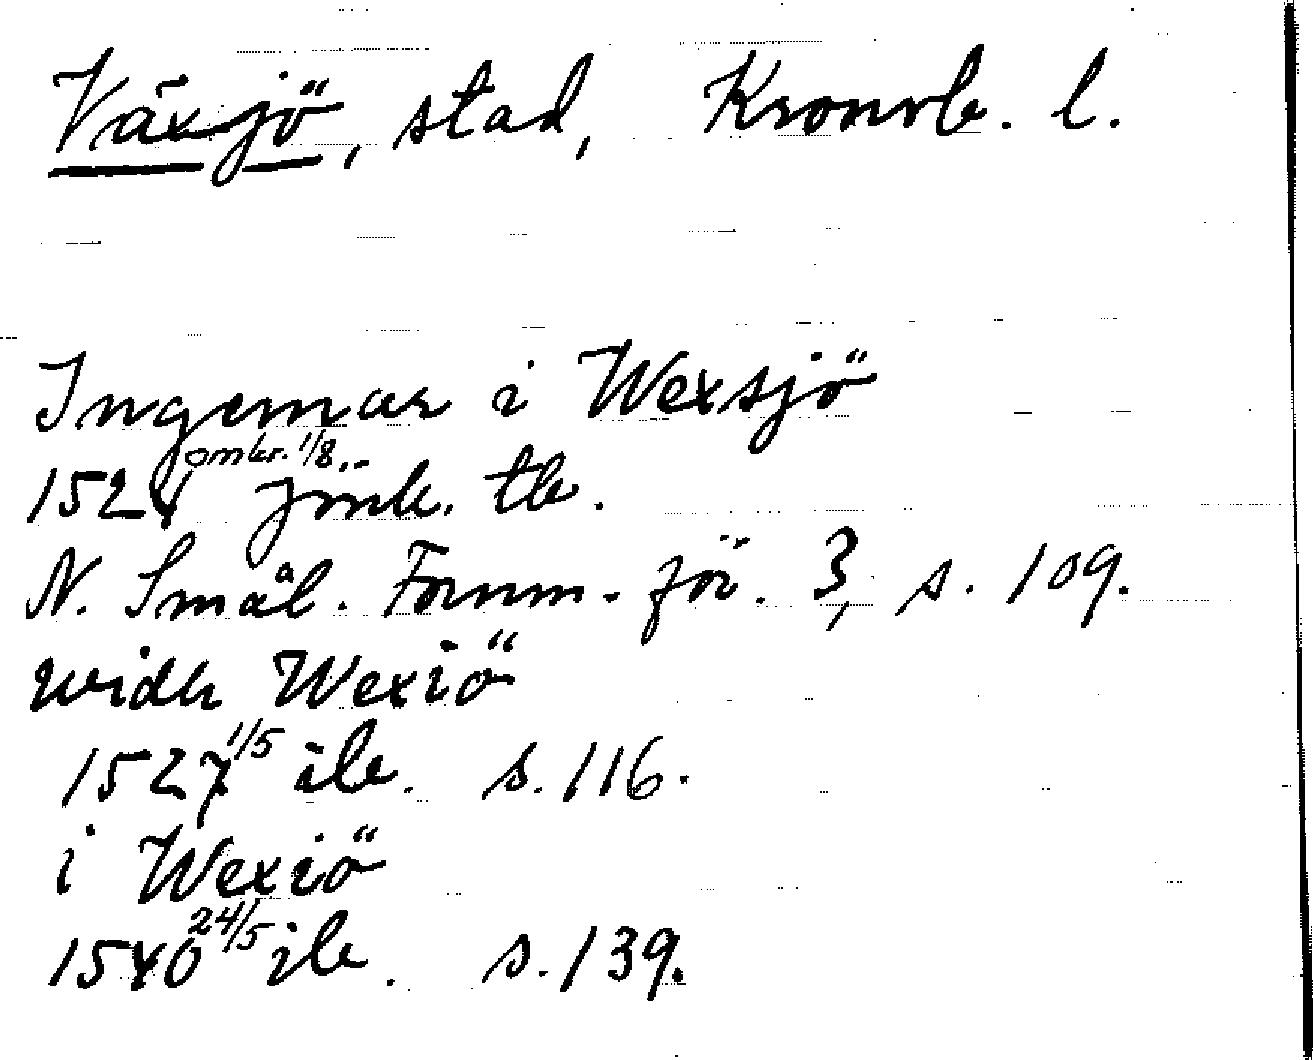 Växjö, stad, Kronob. l.
Ingemar i Wexsjö
1524 omkr. 1/8 Jönk. tb.
N. Smål. Fornm.-för. 3, s. 109.
widh Wexiö
1527 1/5 ib. s. 116.
i Wexiö
1540 24/5 ib. s. 139.